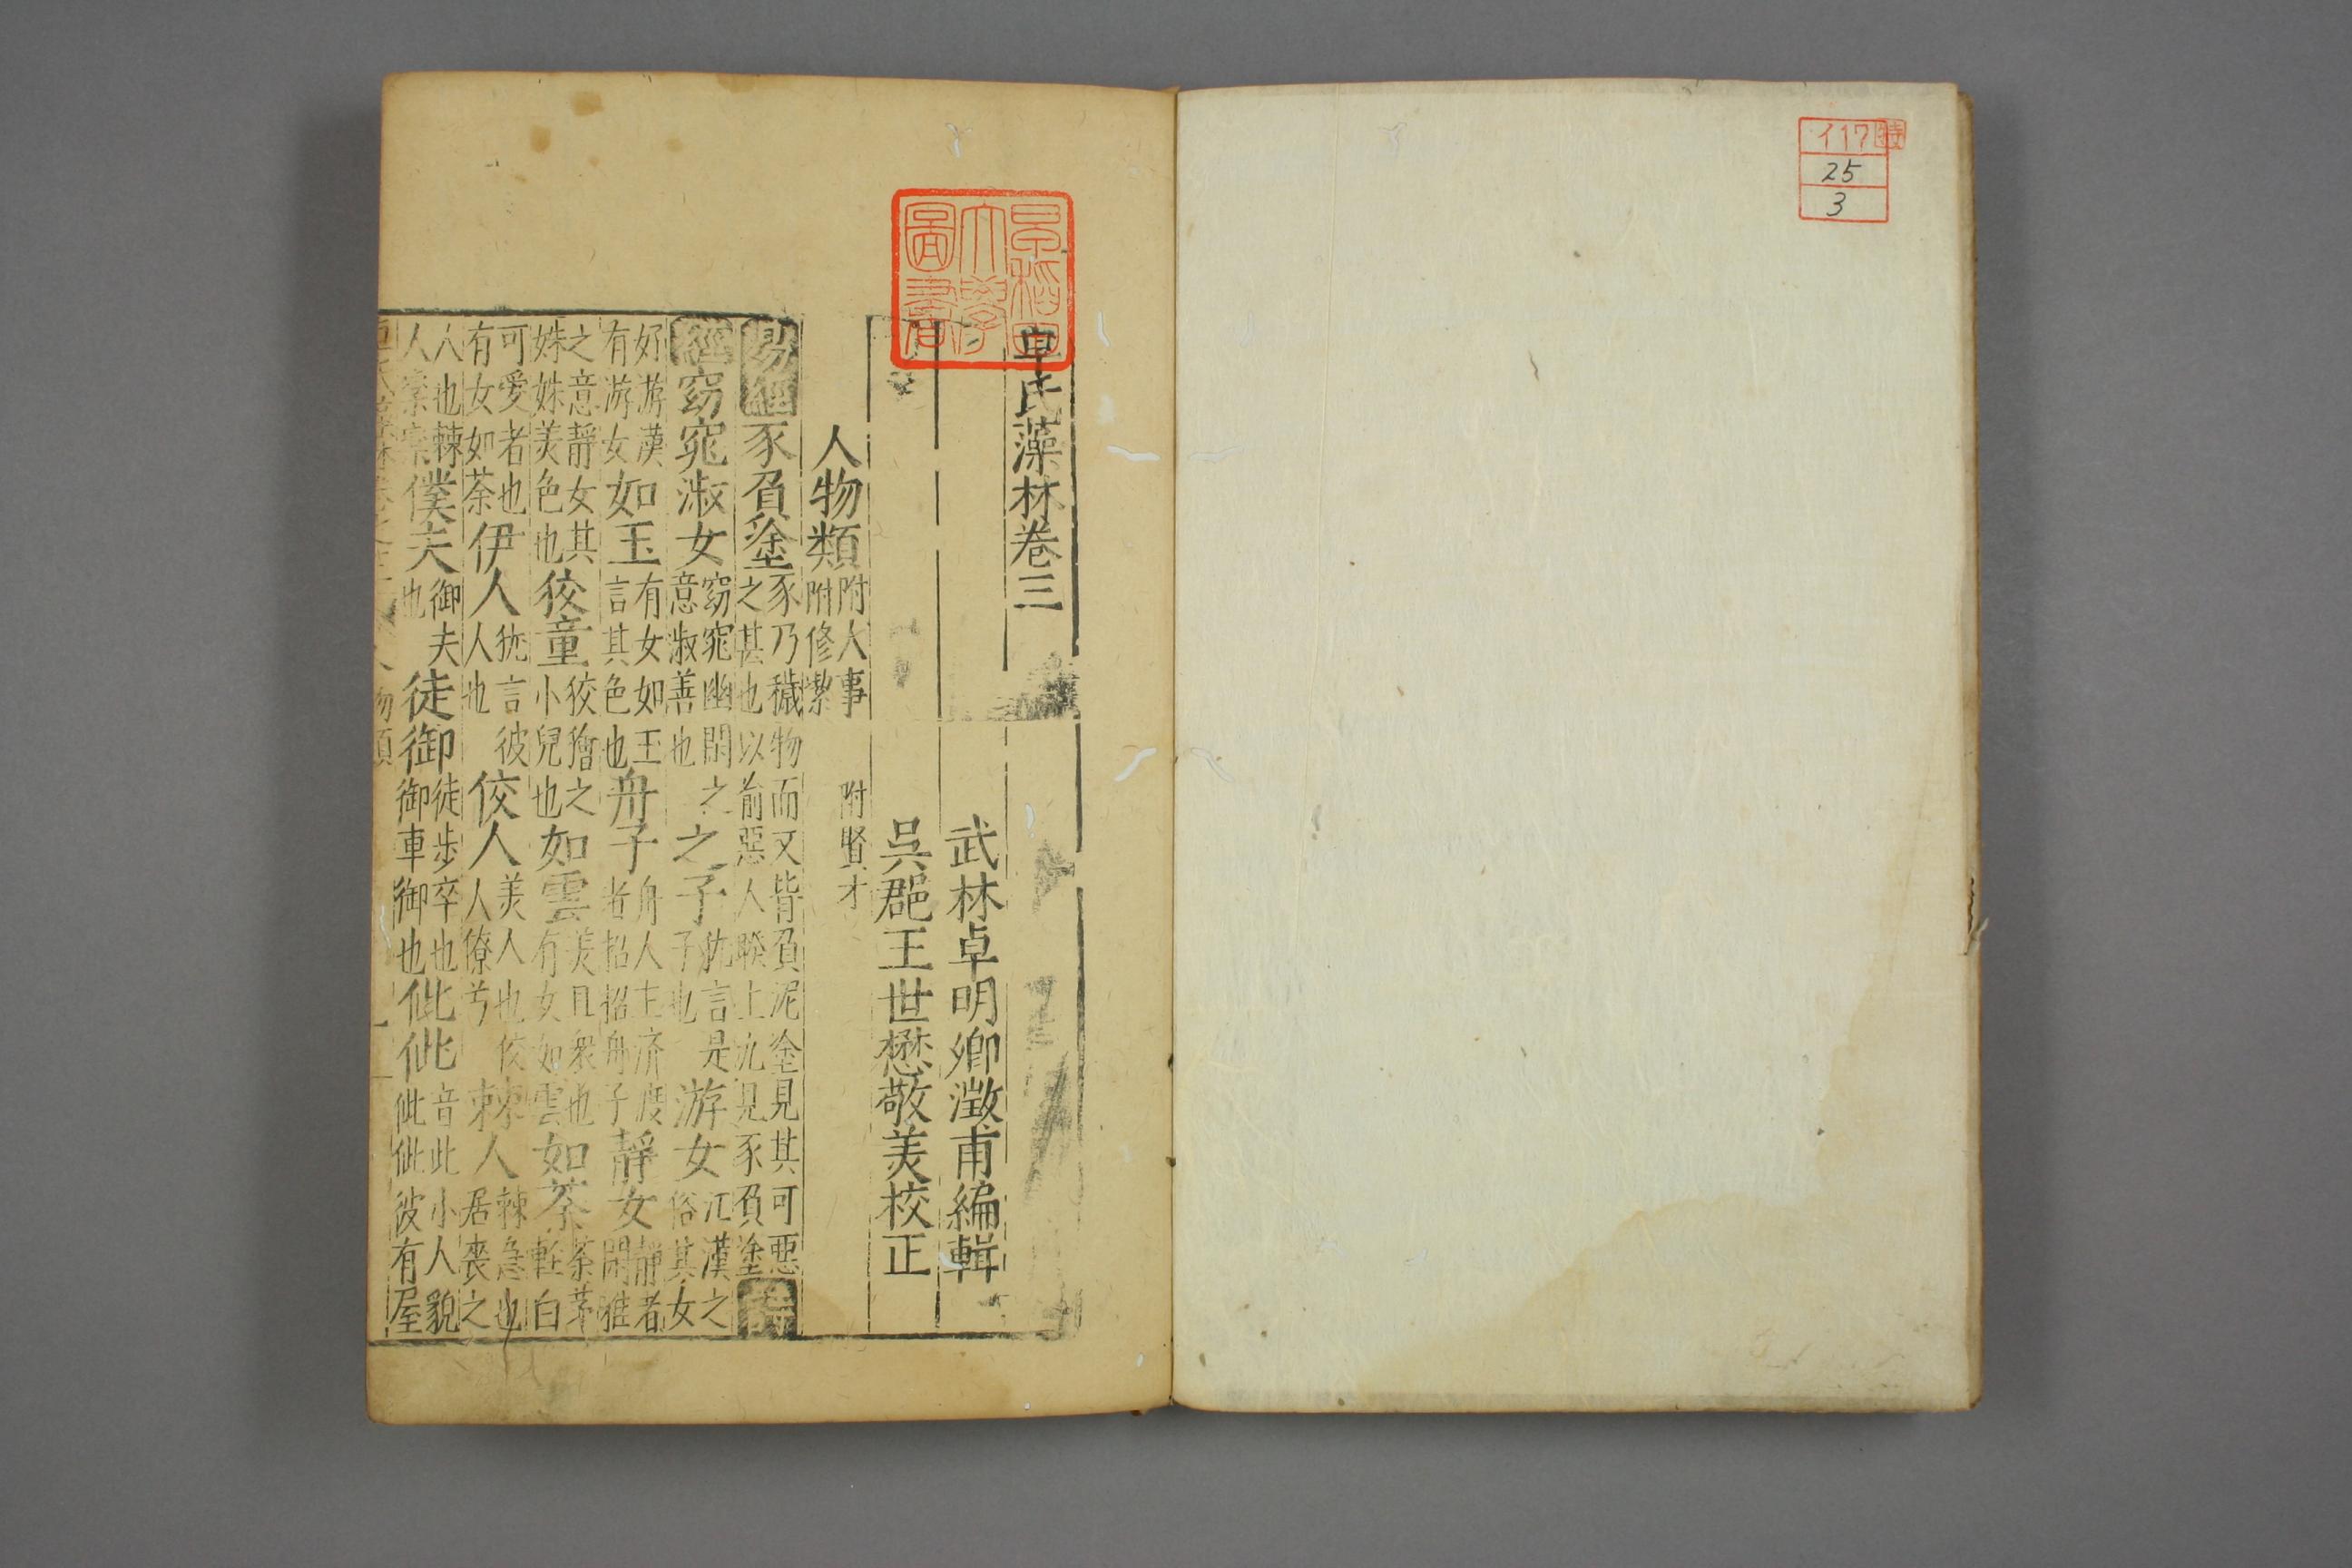 117
特
25
3
早稲田大學圖書
卓氏藻林卷三
武林卓明卿澂甫編輯
吳郡王世懋敬美校正
人物類 附人事附修禊 附賢才
易經豕負塗豕乃穢物而又皆負泥塗見其可惡之甚也以前惡人睽上九見豕負塗詩
經窈窕淑女窈窕幽閒之意淑善也之子 言是子也游女江漢之俗其女
好游漢有游女如玉有女如玉言其色也舟子舟人主濟渡者招招舟子靜女靜者閒雅
之意靜女其姝姝美色也狡童狡獪之小兒也如雲美且衆也有女如雲如荼荼茅輕白
可愛者也有女如荼伊人猶言彼人也佼人美人也佼人僚兮棘人棘急也居喪之
人也棘人欒欒僕夫御夫也徒御徒步卒也御御車也佌佌音此小人貌佌佌彼有屋